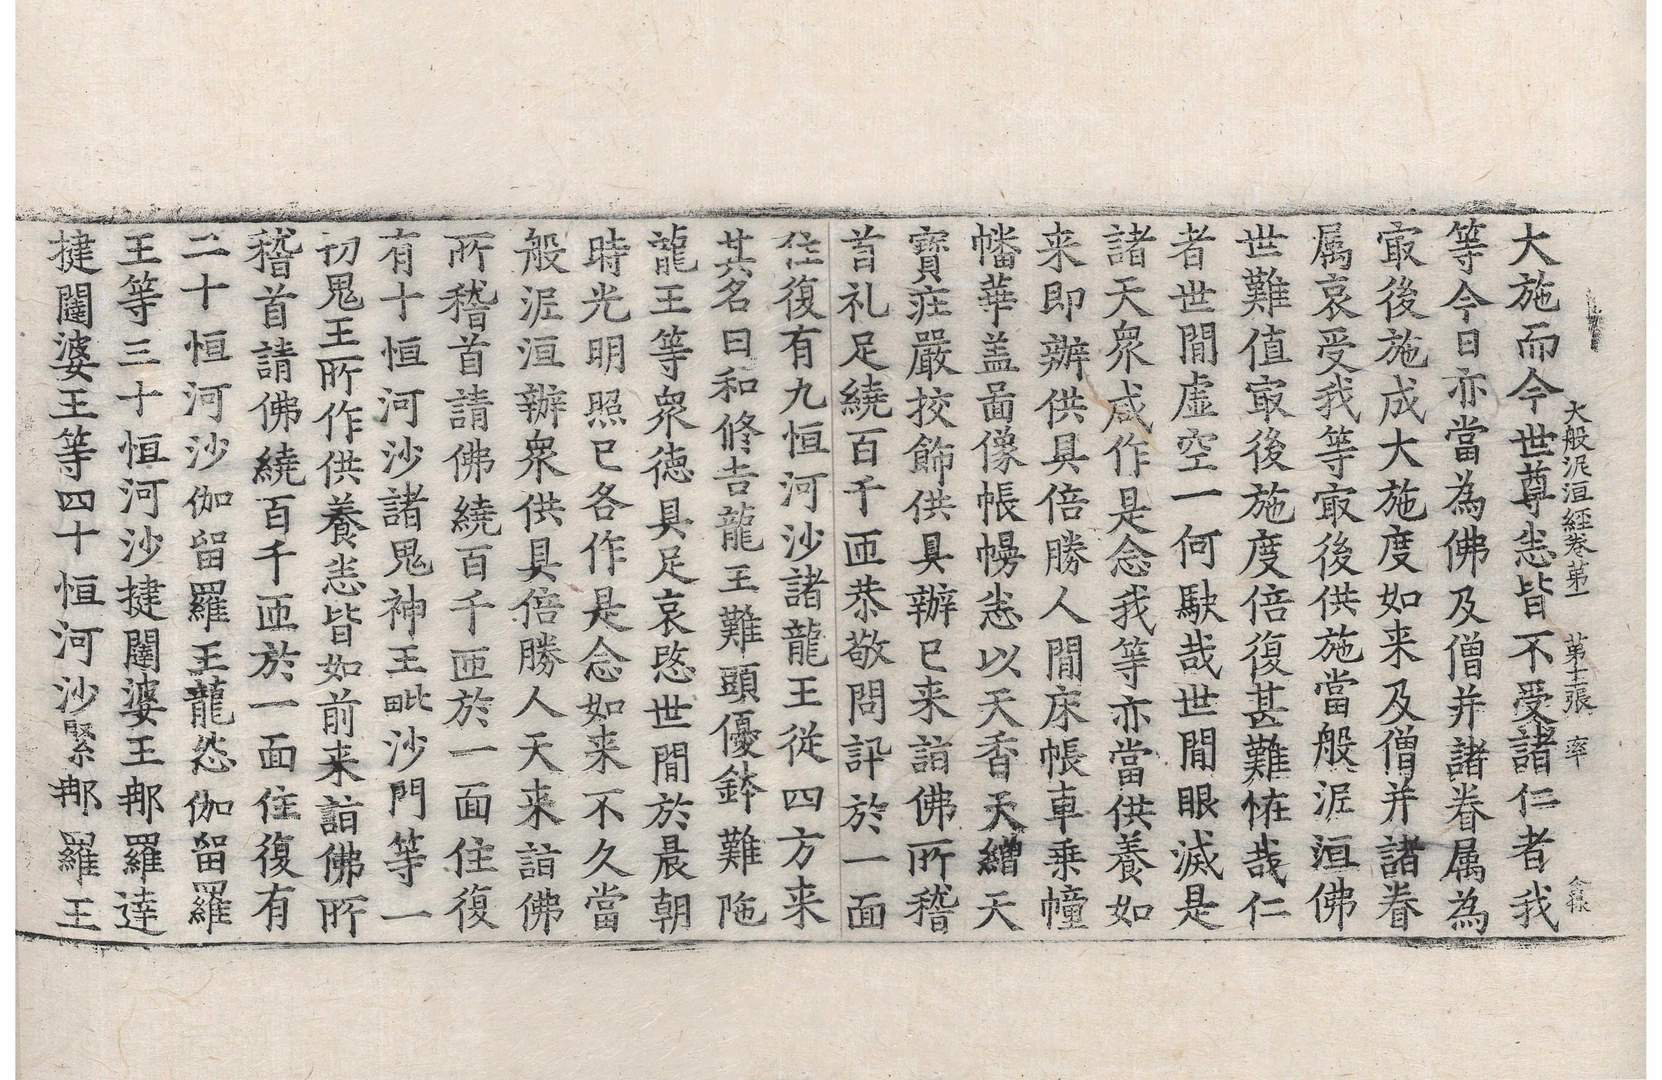 大般泥洹經卷第一 第十二張 率
大施而今世尊悉皆不受諸仁者我
等今日亦當為佛及僧并諸眷属為
㝡後施成大施度如来及僧并諸眷
属哀受我等㝡後供施當般泥洹佛
世難值㝡後施度倍復甚難恠哉仁
者世間虚空一何駃哉世間眼滅是
諸天衆咸作是念我等亦當供養如
来即辦供具倍勝人間床帳車乗幢
幡華盖啚像帳幔悉以天香天繒天
寶莊嚴挍飾供具辦已来詣佛所稽
首礼足繞百千迊恭敬問訊於一面
住復有九恒河沙諸龍王従四方来
其名曰和修吉龍王難頭優鉢難陁
龍王等衆徳具足哀愍世間於晨朝
時光明照已各作是念如来不久當
般泥洹辦衆供具倍勝人天来詣佛
所稽首請佛繞百千迊於一面住復
有十恒河沙諸鬼神王毗沙門等一
切鬼王所作供養悉皆如前来詣佛所
稽首請佛繞百千迊於一面住復有
二十恒河沙伽留羅王龍怨伽留羅
王等三十恒河沙揵闥婆王那羅達
揵闥婆王等四十恒河沙緊那羅王